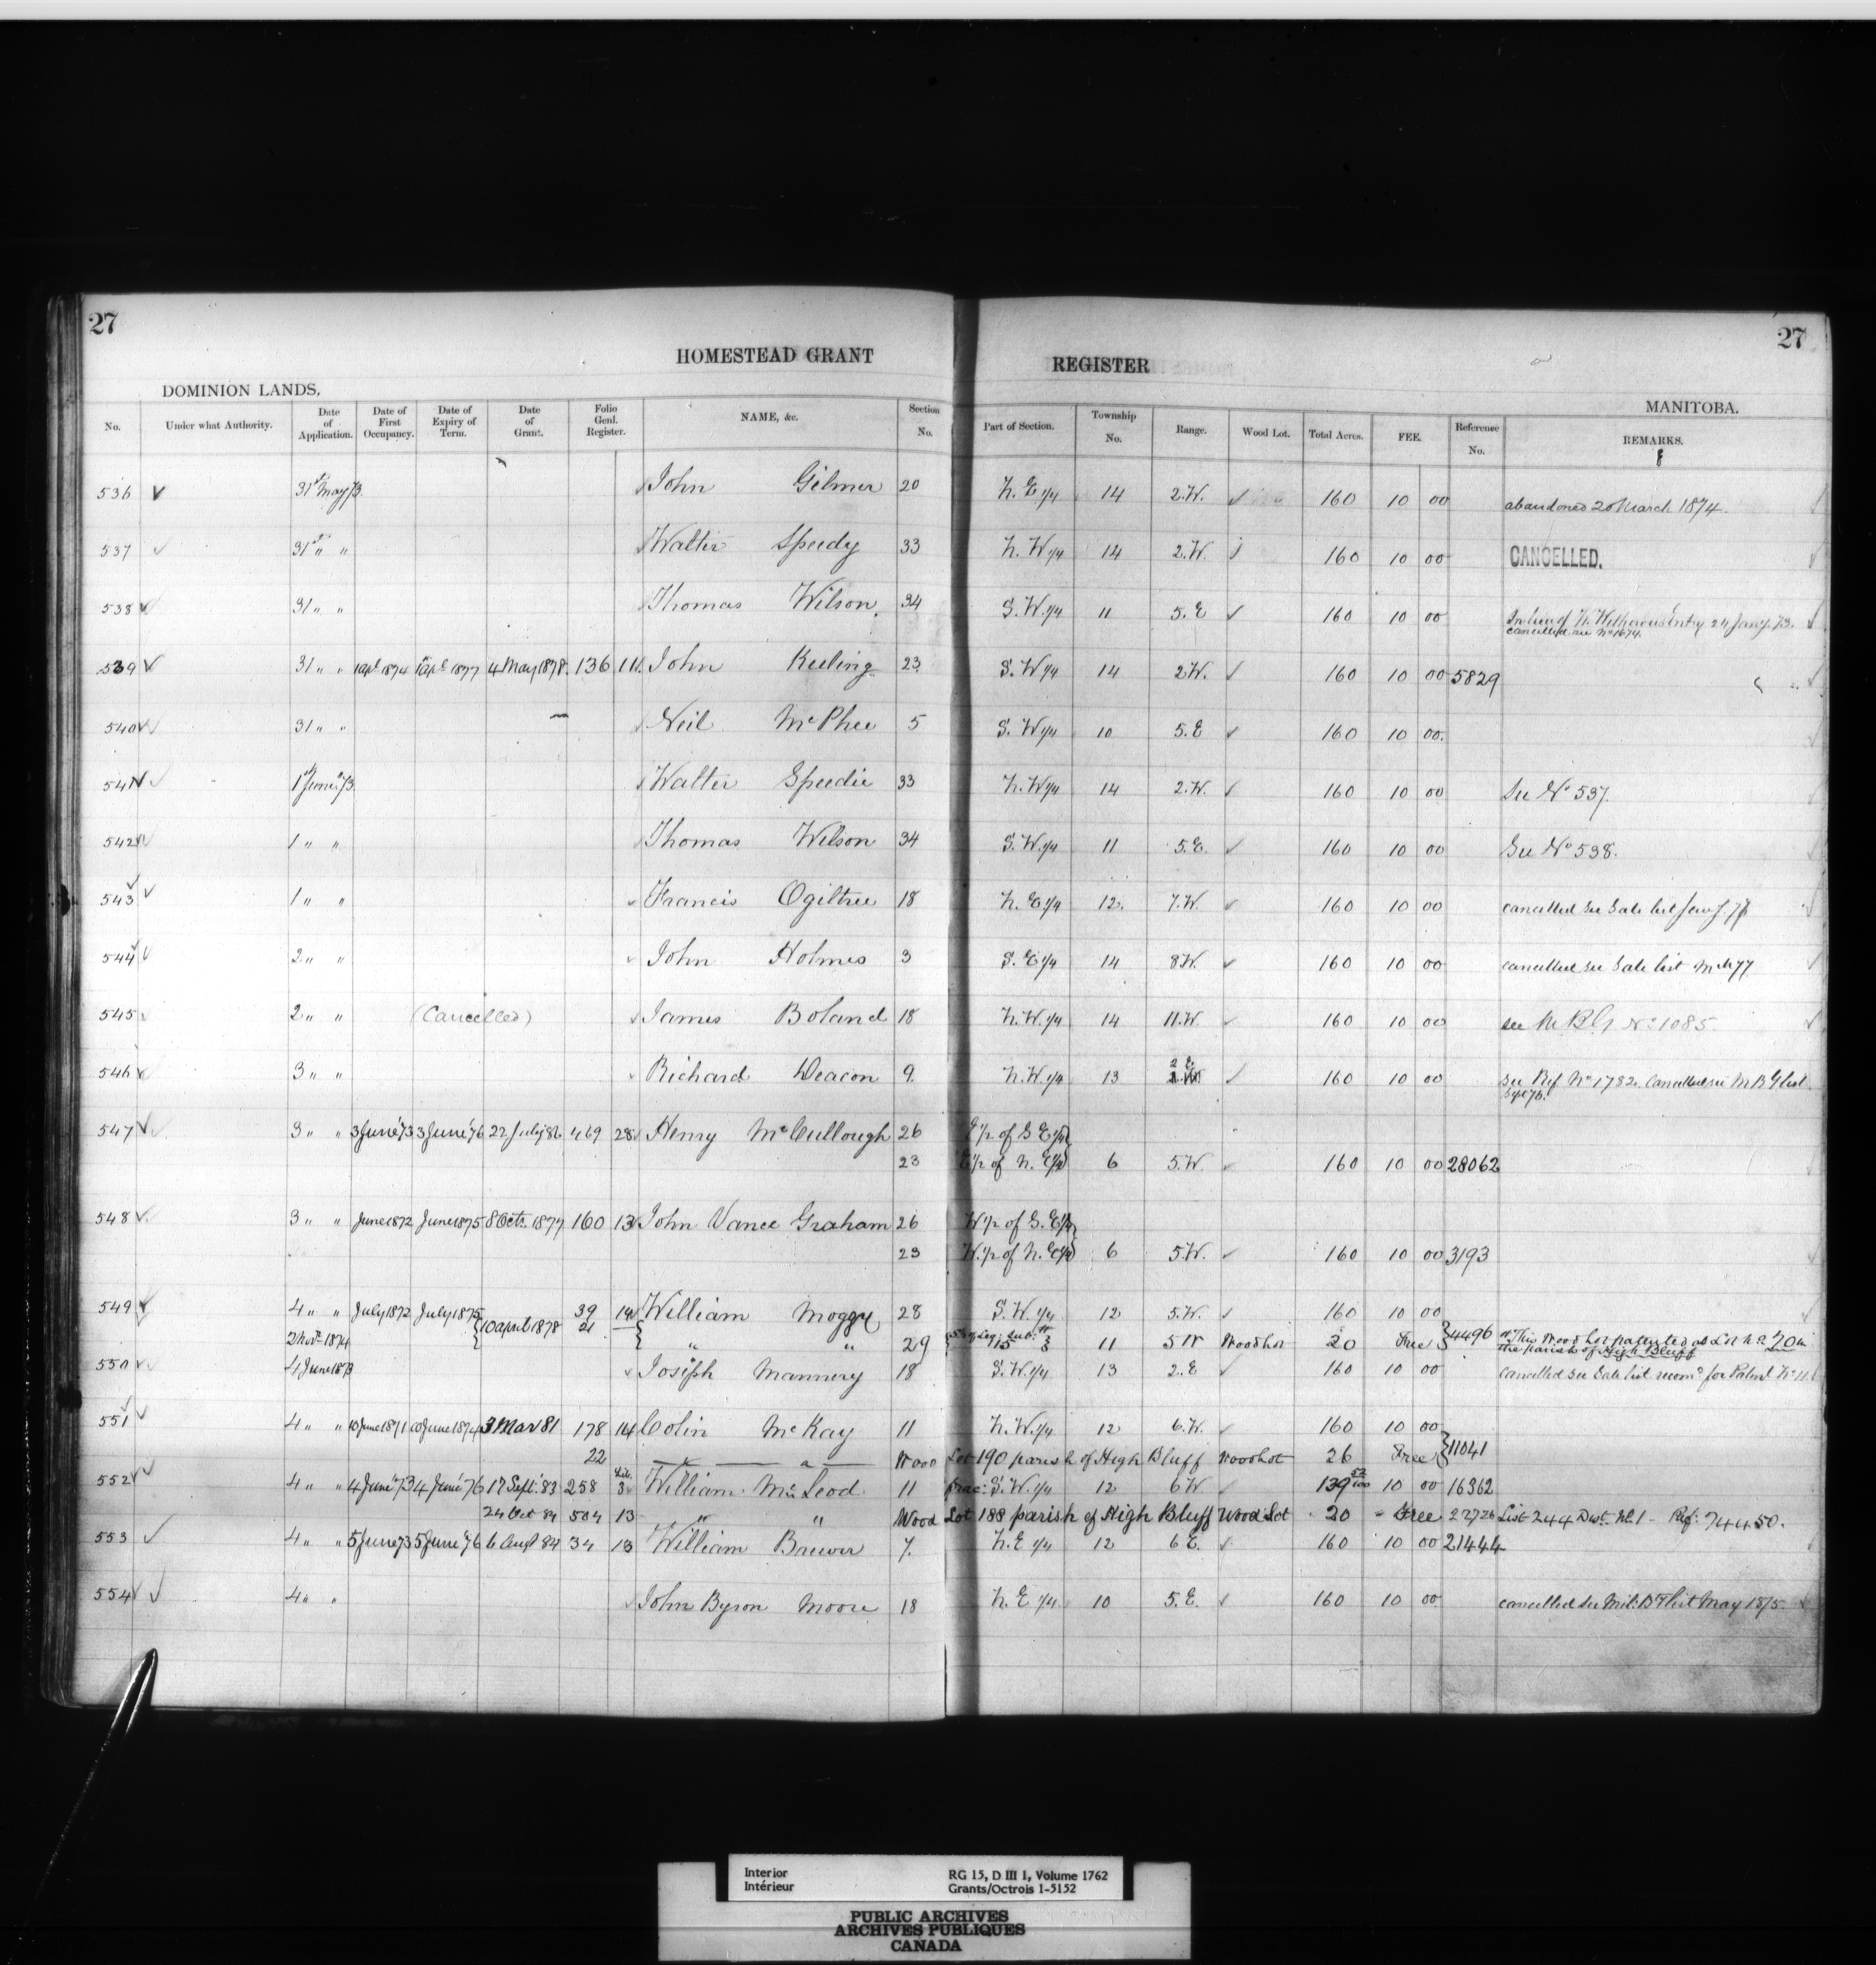 27
27
HOMESTEAD GRANT REGISTER
DOMINION LANDS.
MANITOBA.
No. Under what Authority. Date of Application. Date of First Occupancy. Date of Expiry of Term. Date of Grant. Folio Genl. Register. NAME, &c. Section No. Part of Section. Township No. Range. Wood Lot. Total Acres. FEE. Reference No. REMARKS.
536 31st May 73 John Gilmer 20 N. E 1/4 14 2.W. 160 10 00 abandoned 20 March 1874.
537 31st " " Walter Speedy 33 N. W 1/4 14 2.W. 160 10 00 CANCELLED.
538 31 " " Thomas Wilson. 34 S. W 1/4 11 5.E 160 10 00 In lieu of Entry 24 Jany. 73.
cancelled. see No 1674.
539 31 " " 1 Apl 1874 1 Apl 1877 4 May 1878. 136 11 John Keeling 23 S. W 1/4 14 2W. 160 10 00 5829
540 31 " " Neil McPhee 5 S. W 1/4 10 5.E 160 10 00.
541 1st June 73 Walter Speedie 33 N. W 1/4 14 2.W. 160 10 00 See No 537.
542 1 " " Thomas Wilson 34 S. W 1/4 11 5.E. 160 10 00 See No 538.
543 1 " " Francis Ogiltree 18 N. E 1/4 12. 7.W. 160 10 00 cancelled see Sale list
544 2 " " John Holmes 3 S. E 1/4 14 8W. 160 10 00 cancelled see Sale list Mch 77
545 2 " " (Cancelled) James Boland 18 N. W 1/4 14 11.W 160 10 00 see M B G No 1085.
546 3 " " Richard Deacon 9. N. W 1/4 13 2 E 160 10 00 see Ref No 1782. Cancelled see M B G list
Sept 76.
547 3 " " 3 June '73 3 June '76 22 July 86 469 28 Henry McCullough 26 E 1/2 of S E 1/4
23 E 1/2 of N. E 1/4 6 5.W. 160 10 00 28062
548 3 " " June 1872 June 1875 8 Oct. 1877 160 13 John Vance Graham 26 W 1/2 of S. E 1/4
23 W. 1/2 of N. E 1/4 6 5.W. 160 10 00 3193
549 4 " " July 1872 July 1875 10 april 1878 39 14 William Moggy 28 S. W. 1/4 12 5.W. 160 10 00
2 Nov. 1874 21 " " 29 Leg. Sub. 11 5 W Woodlot 20 Free 4496 This Wood Lot patented as Lot No 70 in
the parish of High Bluff
550 4 June 1873 Joseph Mannery 18 S. W. 1/4 13 2.E 160 10 00 cancelled see Sale list recomd for Patent No 11
551 4 " " 10 June 1871 10 June 1874 3 Mar 81 178 14 Colin McKay 11 N. W. 1/4 12 6.W. 160 10 00
22 " " Wood Lot 190 parish of High Bluff Woodlot 26 Free 11041
552 4 " " 4 June '73 4 June '76 17 Sept. '83 258 Lib. 3 William McLeod 11 frac: S. W. 1/4 12 6 W 139 52/100 10 00 16362
24 Oct 84 504 13 " " Wood Lot 188 parish of High Bluff Wood Lot 20 Free 22726 List 244 Dist. No. 1 - Ref: 74450.
553 4 " " 5 June 73 5 June '76 6 Augt 84 34 13 William Brewer 7. N. E 1/4 12 6 E. 160 10 00 21444
554 4 " " John Byron Moore 18 N. E 1/4 10 5. E. 160 10 00 cancelled see Mil: Bty list May 1875.
Interior
Intérieur
RG 15, D III 1, Volume 1762
Grants/Octrois 1-5152
PUBLIC ARCHIVES
ARCHIVES PUBLIQUES
CANADA